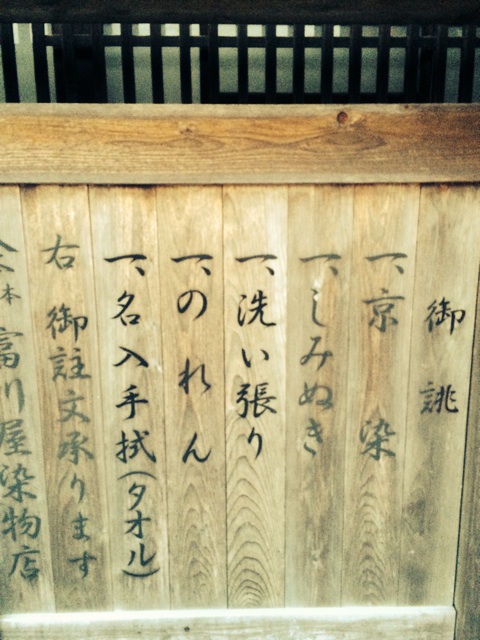 御誂
一、京染
一、しみぬき
一、洗い張り
一、のれん
一、名入手拭(タオル)
右御註文承ります
本富川屋染物店